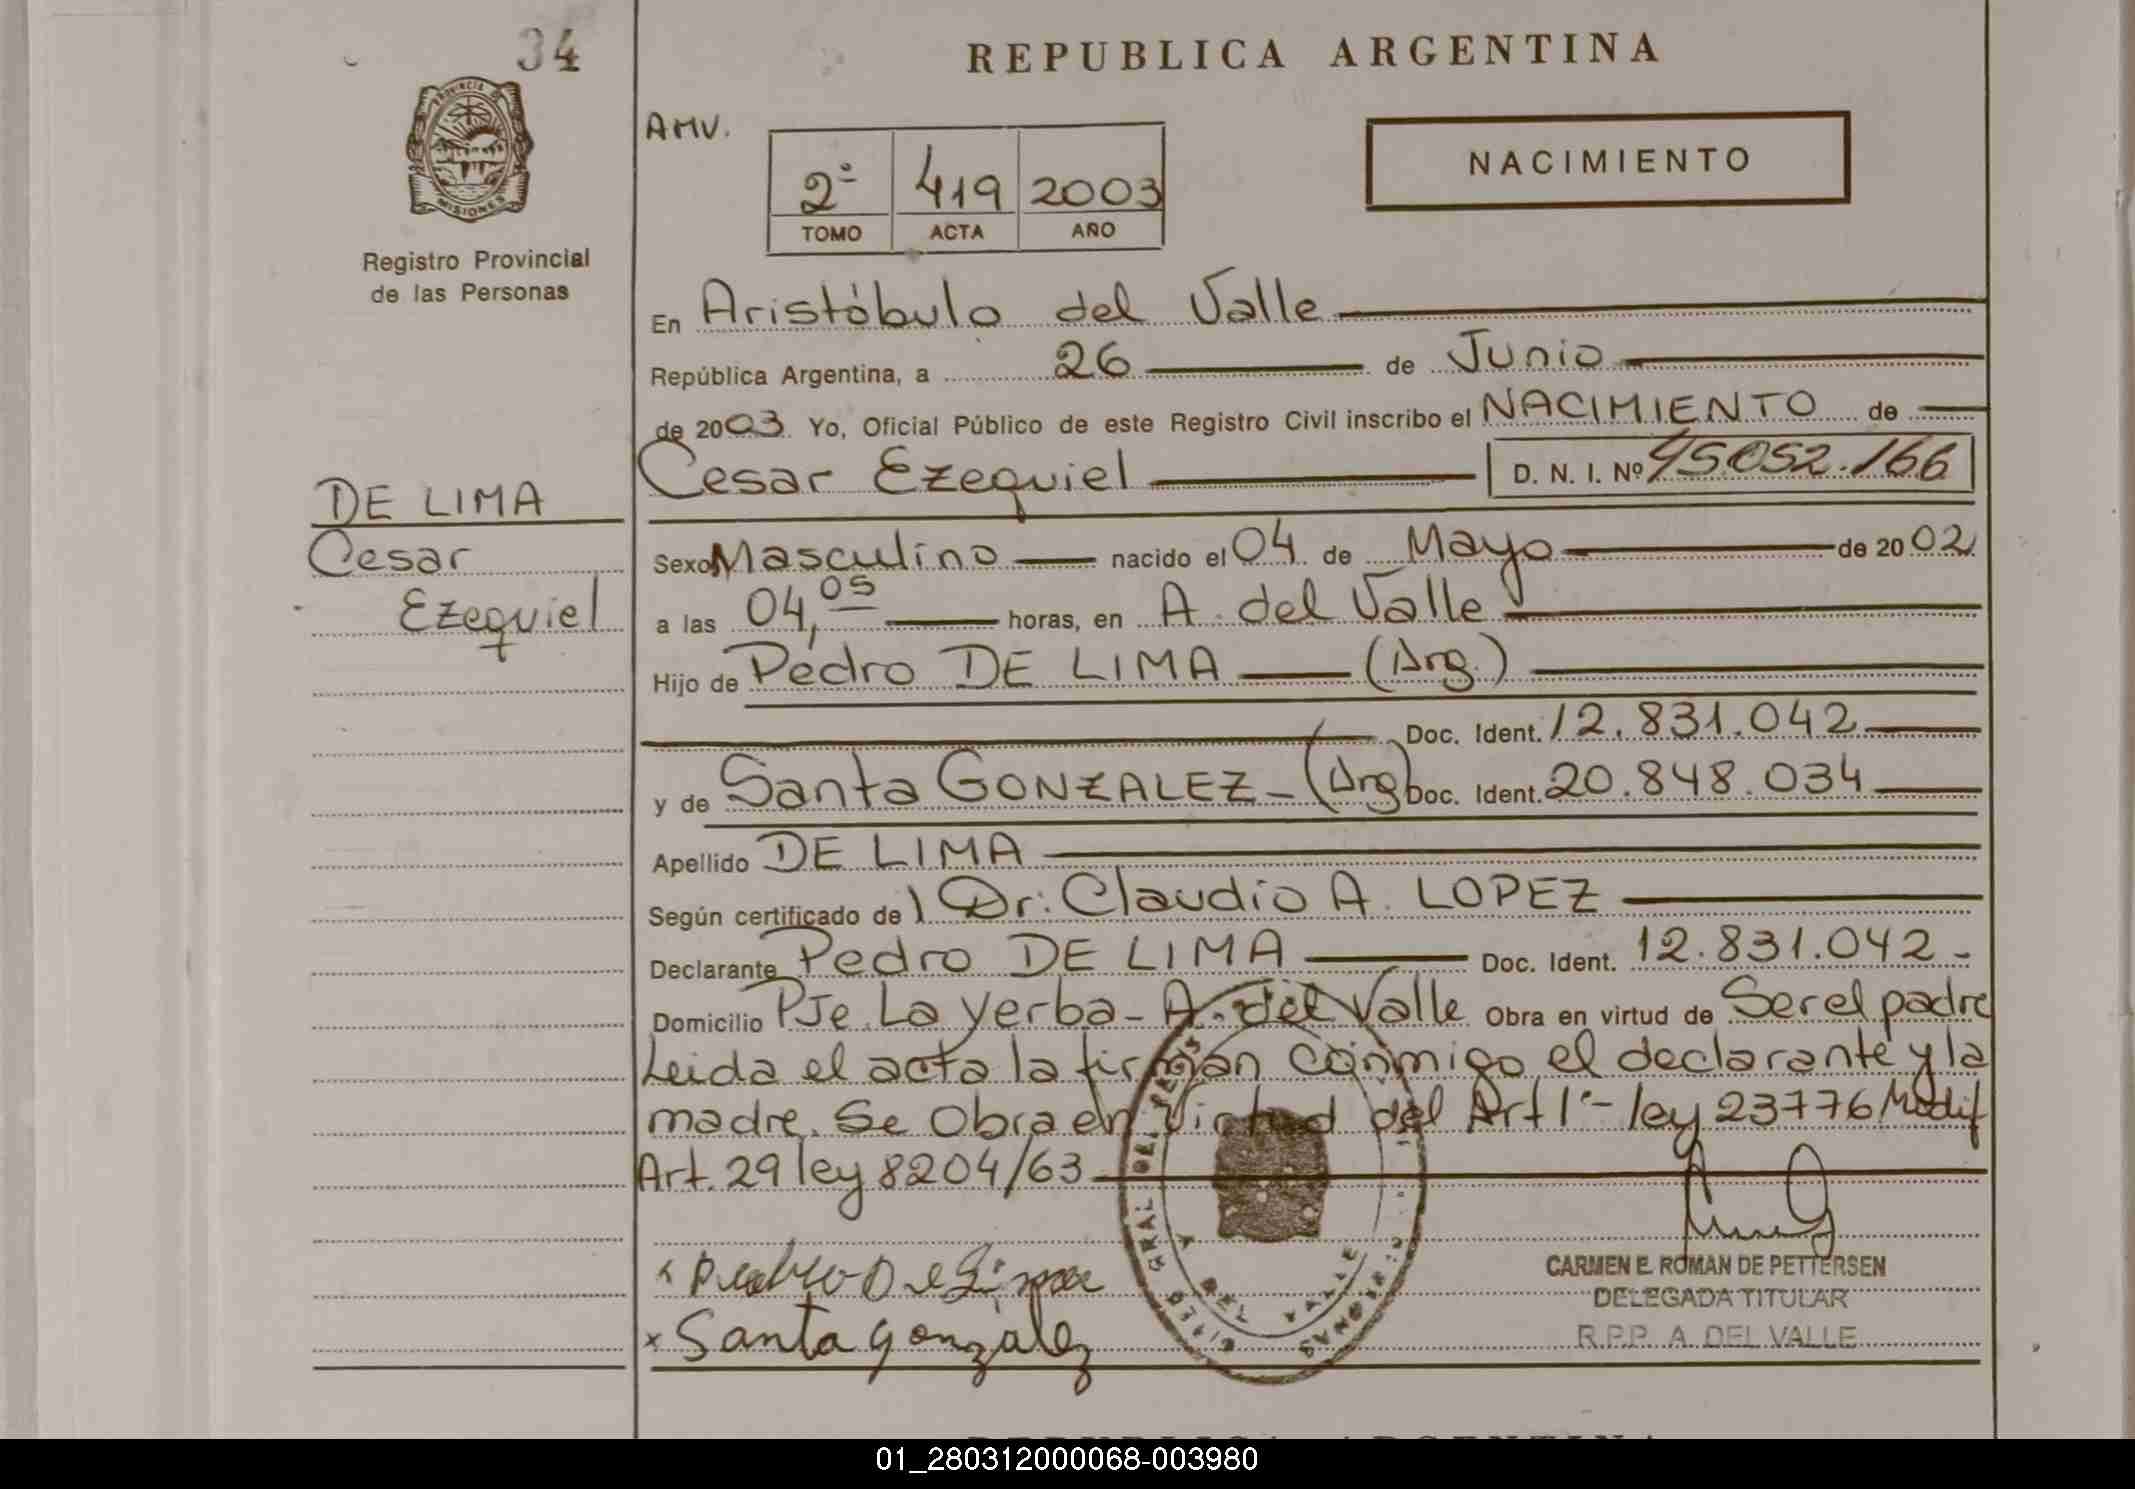 34
REPUBLICA ARGENTINA
PROVINCIA DE
MISIONES
Registro Provincial
de las Personas
AMV.
2º 419 2003
TOMO ACTA AÑO
NACIMIENTO
En Aristóbulo del Valle
República Argentina, a 26 de Junio
de 2003 Yo, Oficial Público de este Registro Civil inscribo el NACIMIENTO de
Cesar Ezequiel D. N. I. Nº 45.052.166
DE LIMA
Cesar
Ezequiel
Sexo Masculino nacido el 04 de Mayo de 2002
a las 04,05 horas, en A. del Valle
Hijo de Pedro DE LIMA (Arg.)
Doc. Ident. 12.831.042
y de Santa GONZALEZ - (Arg) Doc. Ident. 20.848.034
Apellido DE LIMA
Según certificado de Dr: Claudio A. LOPEZ
Declarante Pedro DE LIMA Doc. Ident. 12.831.042 -
Domicilio PJe. La Yerba - A. del Valle Obra en virtud de Ser el padre
Leida el acta la firman conmigo el declarante y la
madre. Se Obra en virtud del Art 1º - ley 23776 Modif
Art. 29 ley 8204/63
x Pedro De Lima
x Santa gonzalez
A. DEL VALLE
CARMEN E. ROMAN DE PETTERSEN
DELEGADA TITULAR
R.P.P. A. DEL VALLE
01_280312000068-003980